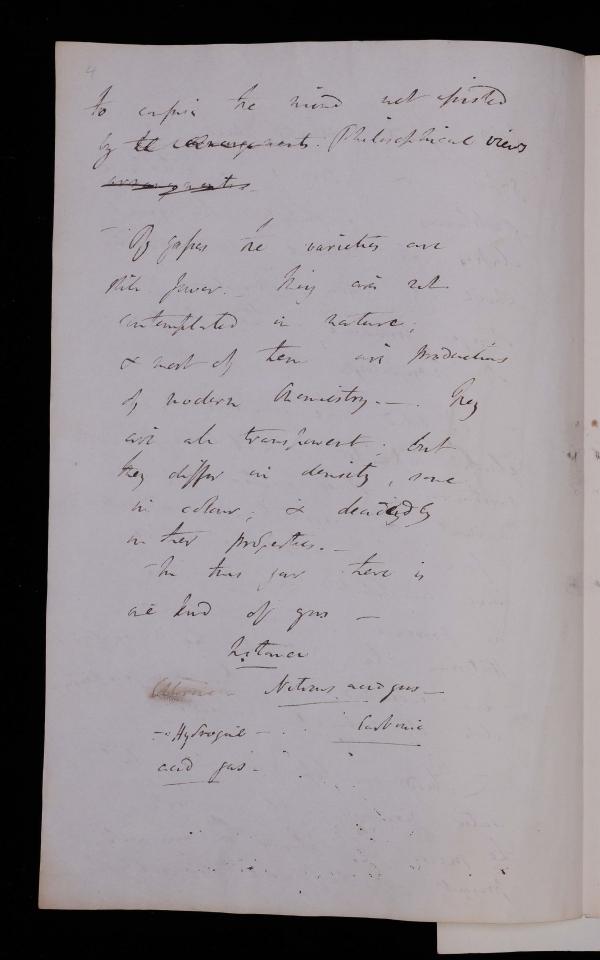 4
to confuse the mind not assisted
by the arrangements. Philosophical views
arrangements.
Of gases the varieties are
still fewer. They are not
contemplated in nature;
& most of them are productions
of modern Chemistry. — They
are all transparent; but
they differ in density, some
in colour; & decidedly
in their properties. —
In this jar there is
one kind of gas —
Instance
Chlorine — Nitrous acid gas —
— Hydrogene — Carbonic
acid gas —